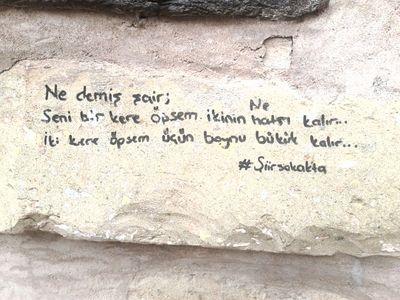 Ne demiş şair;
Ne
Seni bir kere öpsem ikinin hatrı kalır...
İki kere öpsem üçün boynu bükük kalır...
#Şiirsokakta